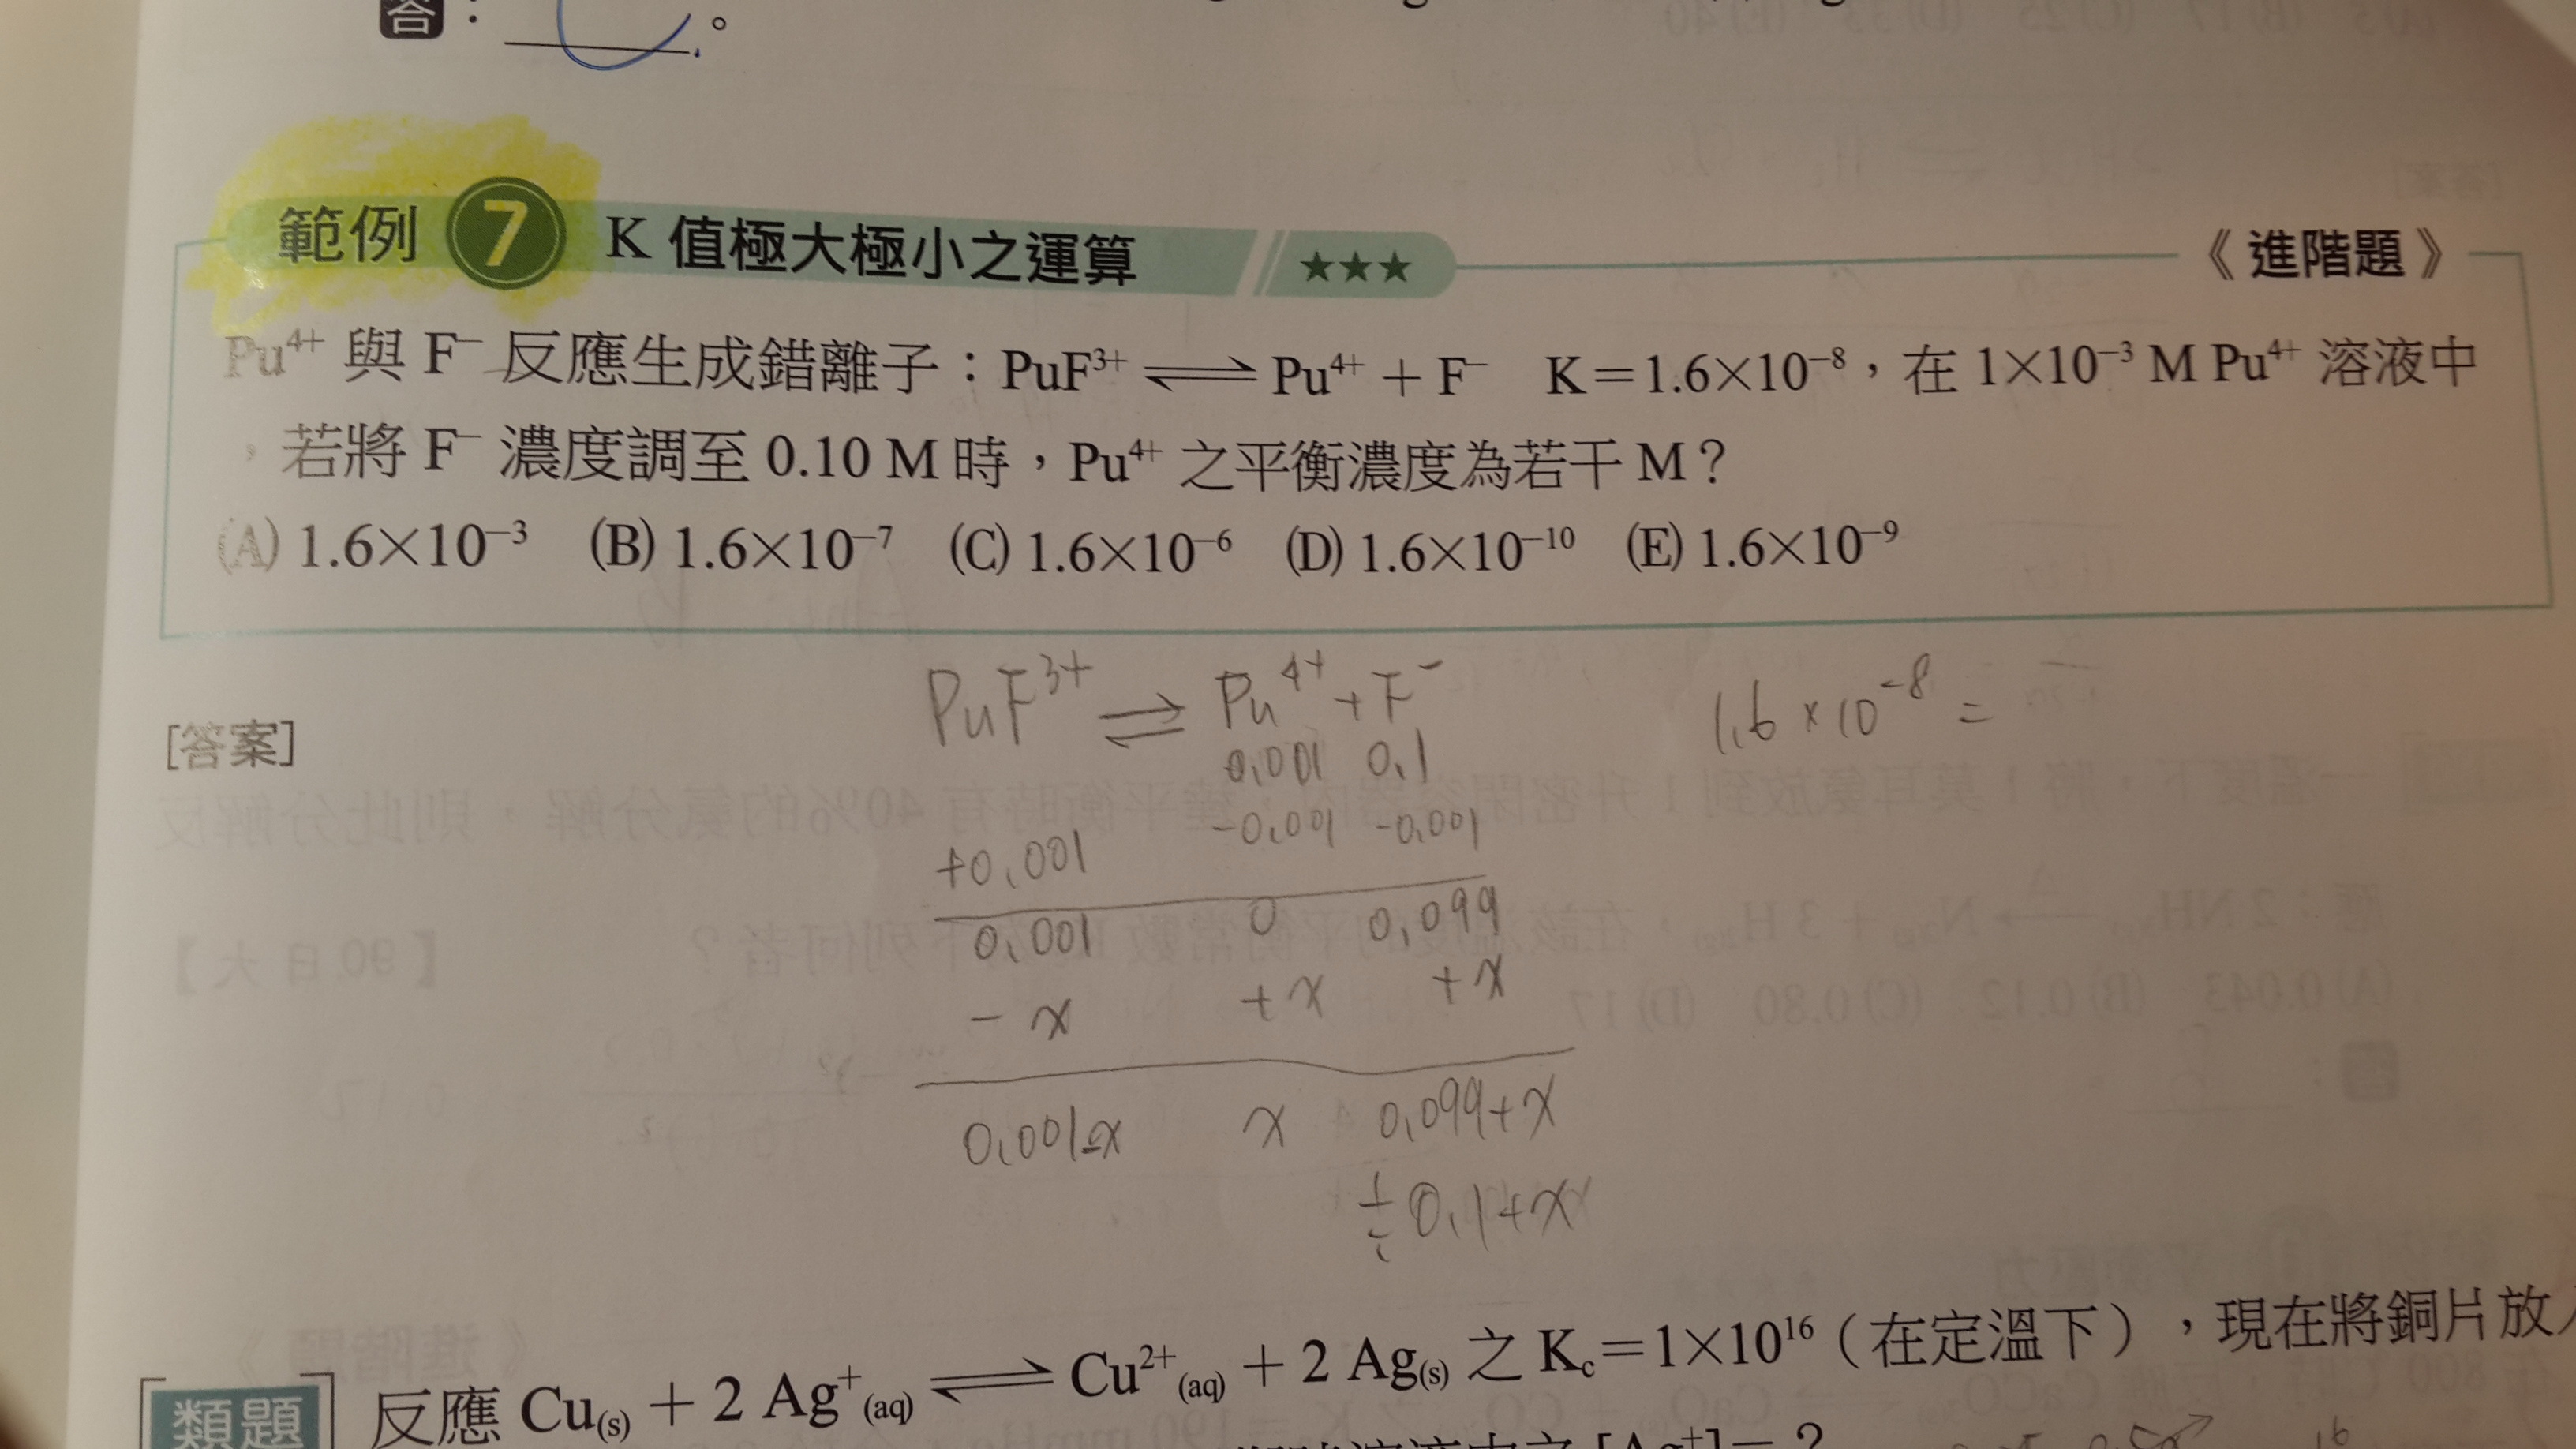 答：。
範例 7 K 值極大極小之運算 ★★★ 《進階題》
Pu⁴⁺ 與 F⁻ 反應生成錯離子：PuF³⁺ ⇌ Pu⁴⁺ + F⁻ K＝1.6×10⁻⁸，在 1×10⁻³ M Pu⁴⁺ 溶液中
，若將 F⁻ 濃度調至 0.10 M 時，Pu⁴⁺ 之平衡濃度為若干 M？
(A) 1.6×10⁻³ (B) 1.6×10⁻⁷ (C) 1.6×10⁻⁶ (D) 1.6×10⁻¹⁰ (E) 1.6×10⁻⁹
PuF³⁺ ⇌ Pu⁴⁺ + F⁻ 1.6×10⁻⁸ =
[答案]
0.001 0.1
+0.001 -0.001 -0.001
0.001 0 0.099
-x +x +x
0.001-x x 0.099+x
≒0.1+x
類題 反應 Cu₍ₛ₎ + 2 Ag⁺(aq) ⇌ Cu²⁺(aq) + 2 Ag₍ₛ₎ 之 Kc＝1×10¹⁶（在定溫下），現在將銅片放
[Ag⁺]＝？